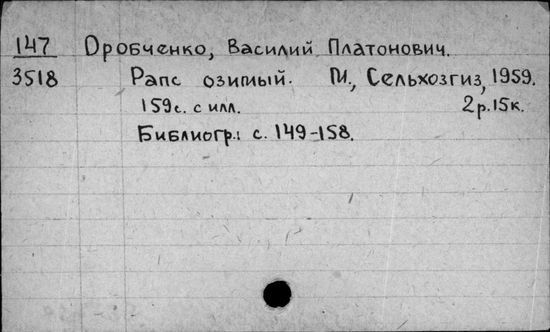 147 Дробченко, Василий Платонович.
3518 Рапс озимый. М., Сельхозгиз, 1959.
159с. с илл. 2р.15к.
Библиогр.: с. 149-158.